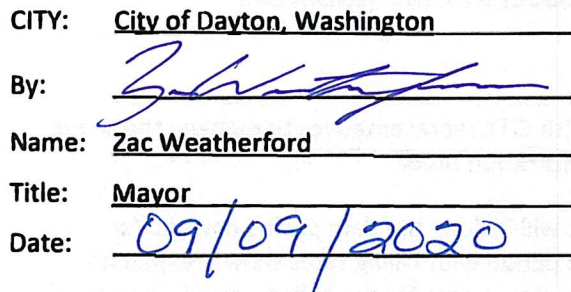 CITY: City of Dayton, Washington
By: Zac Weatherford
Name: Zac Weatherford
Title: Mayor
Date: 09/09/2020